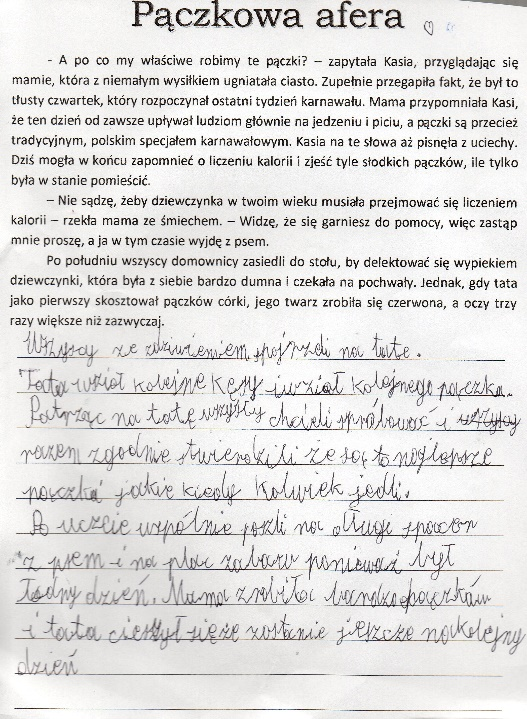 Pączkowa afera
- A po co my właściwe robimy te pączki? – zapytała Kasia, przyglądając się
mamie, która z niemałym wysiłkiem ugniatała ciasto. Zupełnie przegapiła fakt, że był to
tłusty czwartek, który rozpoczynał ostatni tydzień karnawału. Mama przypomniała Kasi,
że ten dzień od zawsze upływał ludziom głównie na jedzeniu i piciu, a pączki są przecież
tradycyjnym, polskim specjałem karnawałowym. Kasia na te słowa aż pisnęła z uciechy.
Dziś mogła w końcu zapomnieć o liczeniu kalorii i zjeść tyle słodkich pączków, ile tylko
była w stanie pomieścić.
– Nie sądzę, żeby dziewczynka w twoim wieku musiała przejmować się liczeniem
kalorii – rzekła mama ze śmiechem. – Widzę, że się garniesz do pomocy, więc zastąp
mnie proszę, a ja w tym czasie wyjdę z psem.
Po południu wszyscy domownicy zasiedli do stołu, by delektować się wypiekiem
dziewczynki, która była z siebie bardzo dumna i czekała na pochwały. Jednak, gdy tata
jako pierwszy skosztował pączków córki, jego twarz zrobiła się czerwona, a oczy trzy
razy większe niż zazwyczaj.
Wszyscy ze zdziwieniem spojrzeli na tate.
Tata wziął kolejne kęsy i wziął kolejnego pączka.
Patrząc na tatę wszyscy chcieli spróbować i wszyscy
razem zgodnie stwierdzili ze są to najlepsze
pączki jakie kiedy kolwiek jedli.
Po uczcie wspólnie poszli na długi spacer
z psem i na plac zabaw ponieważ był
ładny dzień. Mama zrobiła bardzo pączków
i tata cieszył się że zostanie jeszcze na kolejny
dzień